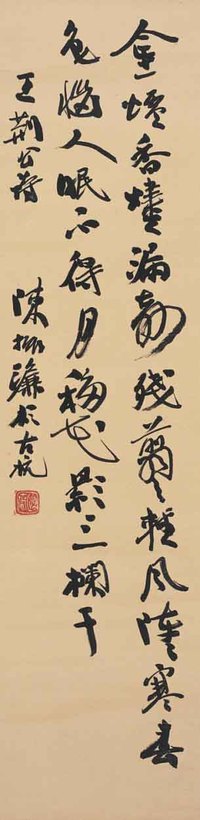 金爐香燼漏聲殘翦々輕風陣々寒春
色惱人眠不得月移花影上欄干
王荊公詩 陳振濂於古杭